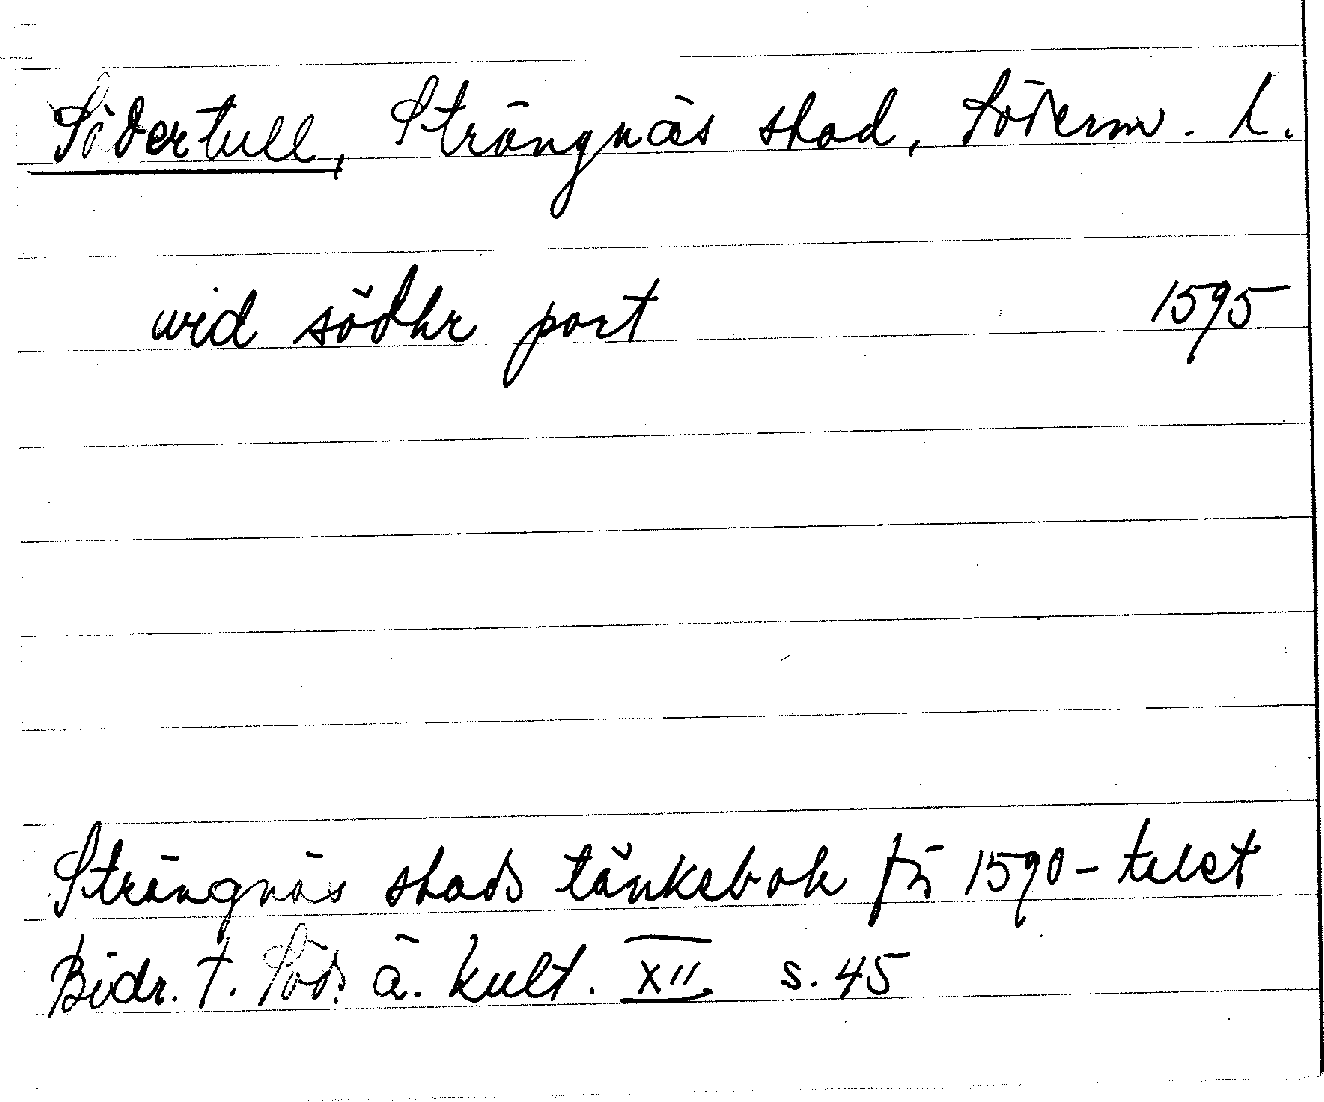 Södertull, Strängnäs stad, Söderm. L.
wid södhr port 1595
Strängnäs stads tänkebok för 1590-talet
Bidr. t. Söd. ä. kult. XII s. 45